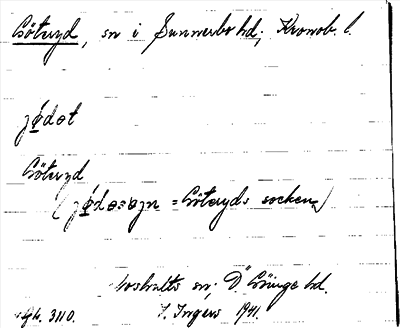 Göteryd, sn i Sunnerbo hd; Kronob. l.
jø̱dət
Göteryd
(jø̱dəsəȷn = Göteryds socken)
Loshults sn. Ö Göinge hd.
3110. I. Ingers 1941.